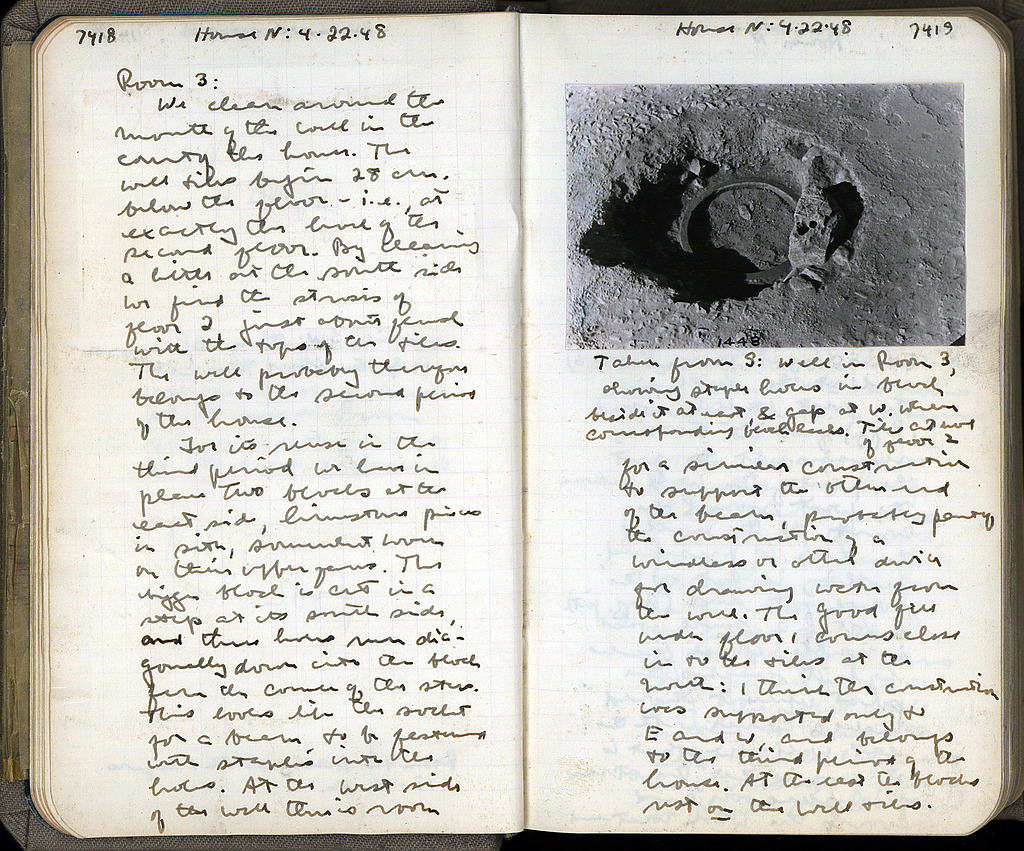 7418 House N: 4.22.48
Room 3:
We clean around the
mouth of the well in the
court of the house. The
well tiles begin 28 cm.
below the floor - i.e., at
exactly the level of the
second floor. By cleaning
a little at the south side
we find the strosis of
floor 2 just about flush
with the tops of the tiles.
The well probably therefore
belongs to the second period
of the house.
For its reuse in the
third period we have in
place two blocks at the
east side, limestone pieces
in situ, somewhat worn
on their upper faces. The
bigger block is cut in a
step at its south side,
and three holes run dia-
gonally down into the block
from the corner of the step.
This looks like the socket
for a beam to be fastened
with staples into the
holes. At the west side
of the well there is room
House N: 4.22.48 7419
1448
Taken from S: Well in Room 3,
showing staple holes in block
beside it at east, & gap at W. where
corresponding block Tile at level
of floor 2
for a similar construction
to support the other end
of the beam, probably part of
the construction of a
windlass or other device
for drawing water from
the well. The good fill
under floor 1 comes close
in to the tiles at the
north: I think the construction
was supported only to
E and W, and belongs
to the third period of the
house. At the east the blocks
rest on the well tiles.